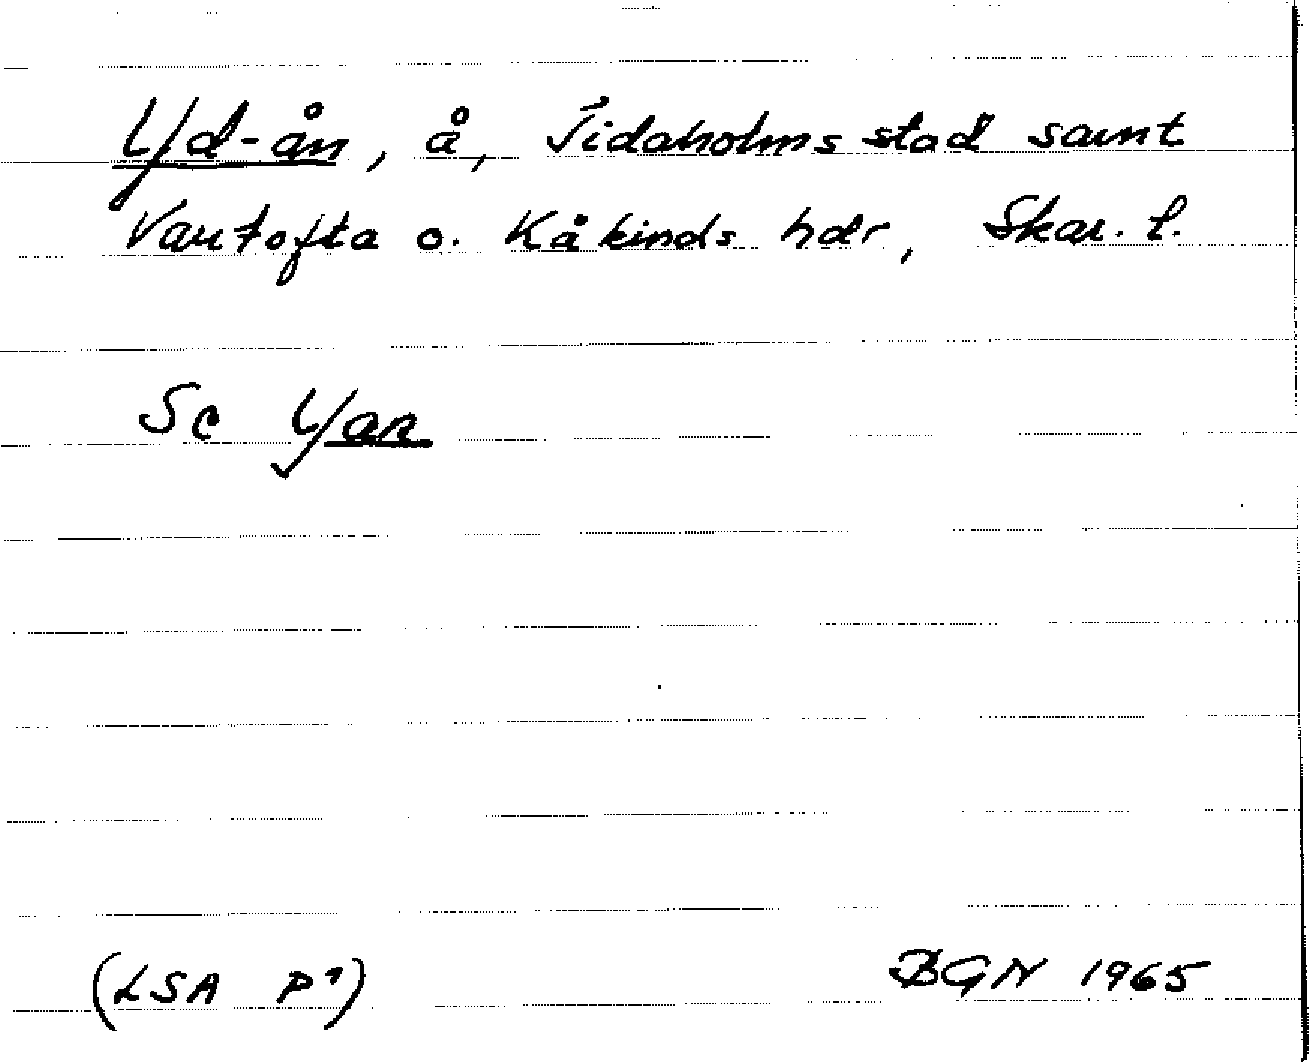 Yd-ån, å, Tidaholms stad samt
Vartofta o. Kåkinds hdr, Skar. l.
Se Yan
(LSA P1)
BGN 1965